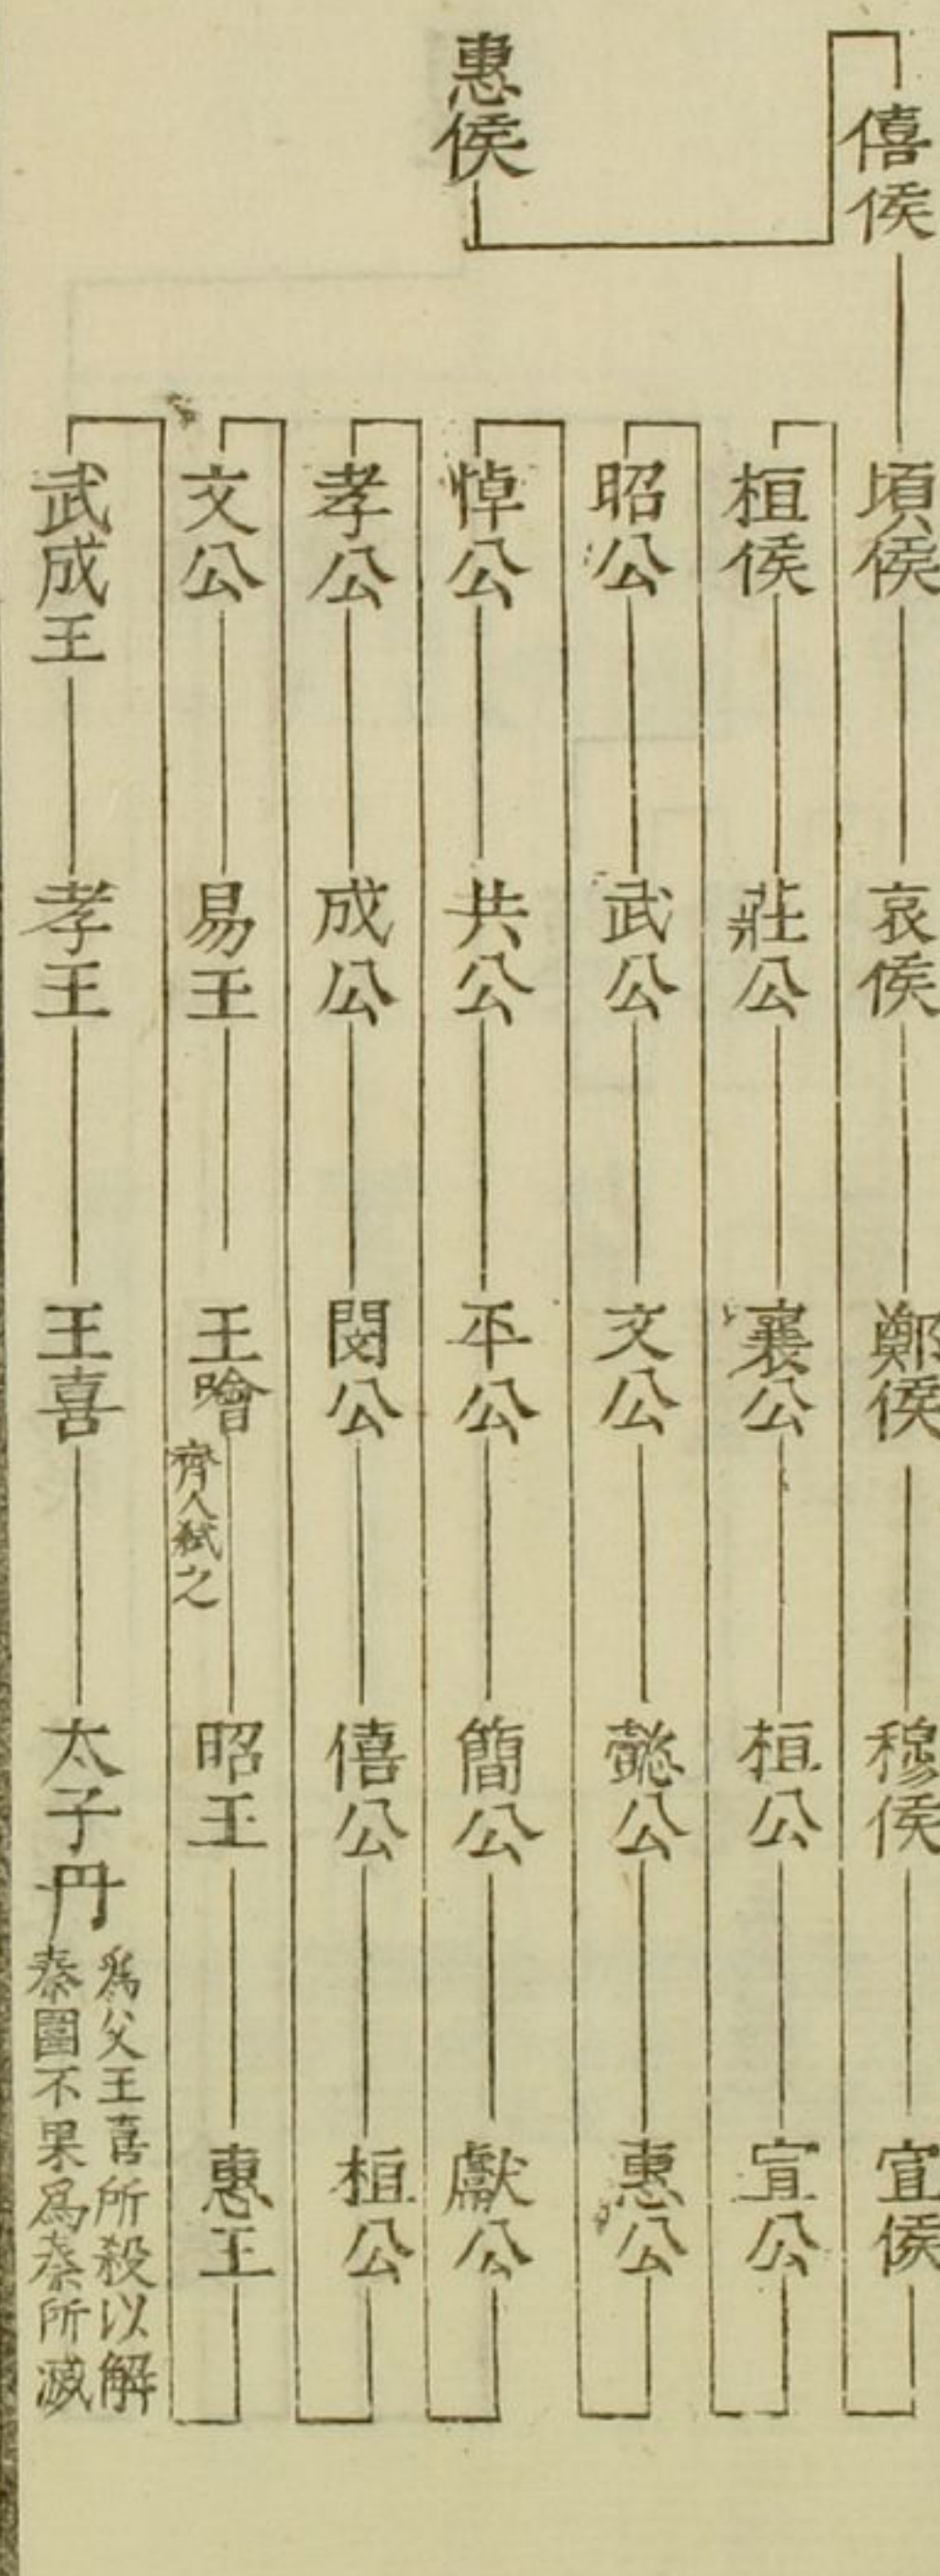 惠侯
僖侯
頃侯
哀侯
鄭侯
穆侯
宣侯
桓侯
莊公
襄公
桓公
宣公
昭公
武公
文公
懿公
惠公
悼公
共公
平公
簡公
獻公
孝公
成公
閔公
僖公
桓公
文公
易王
王噲
齊人弒之
昭王
惠王
武成王
孝王
王喜
太子丹
爲父王喜所殺以解
秦圍不果爲秦所滅